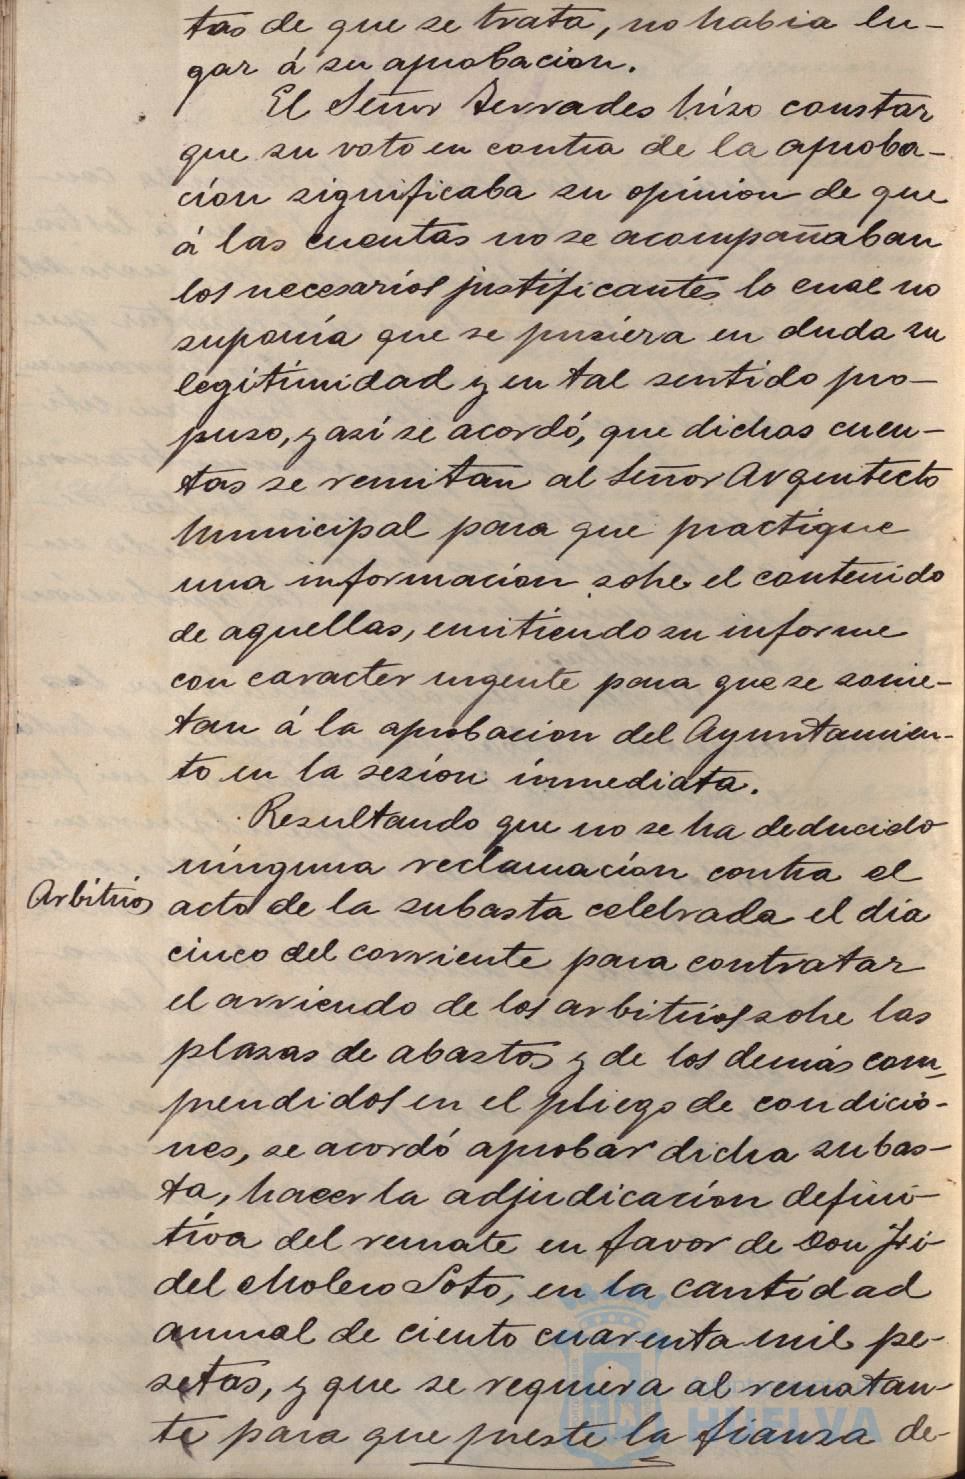 tas de que se trata, no habia lu-
gar á su aprobacion.
El Señor Terrades hizo constar
que su voto en contra de la aproba-
cion significaba su opinion de que
á las cuentas no se acompañaban
los necesarios justificantes lo cual no
suponia que se pusiera en duda su
legitimidad y en tal sentido pro-
puso, y asi se acordó, que dichas cuen-
tas se remitan al Señor Arquitecto
Municipal para que practique
una informacion sobre el contenido
de aquellas, emitiendo su informe
con caracter urgente para que se some-
tan á la aprobacion del Ayuntamien-
to en la sesion inmediata.
Resultando que no se ha deducido
ninguna reclamación contra el
Arbitrios
acto de la subasta celebrada el dia
cinco del corriente para contratar
el arriendo de los arbitrios sobre las
plazas de abastos y de los demás com-
prendidos en el pliego de condicio-
nes, se acordó aprobar dicha subas-
ta, hacer la adjudicación defini-
tiva del remate en favor de Don Fi-
del Molero Soto, en la cantidad
anual de ciento cuarenta mil pe-
setas, y que se requiera al rematan-
te para que preste la fianza de-
HUELVA